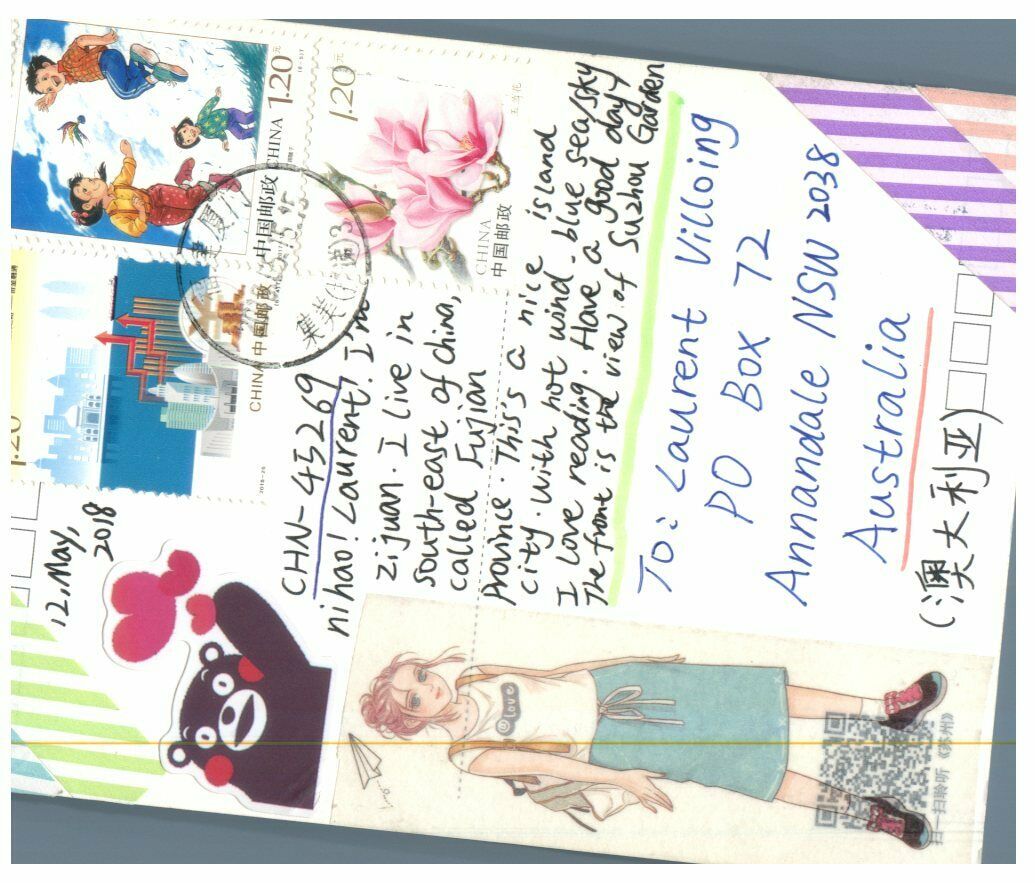 1.20元
CHINA
中国邮政
1.20元
CHINA
中国邮政
1.20
CHINA 中国邮政
12.May,
2018
CHN-45269
nihao! Laurent! I'm
zijuan. I live in
south-east of China,
called Fujian
Province. This a nice island
city. with hot wind. blue sea/sky
I love reading. Have a good day
The front is the view. of Suzhou Garden
To: Laurent Villoing
PO Box 72
Annandale NSW 2038
Australia
(澳大利亚)
Love
扫一扫聆听《苏州》